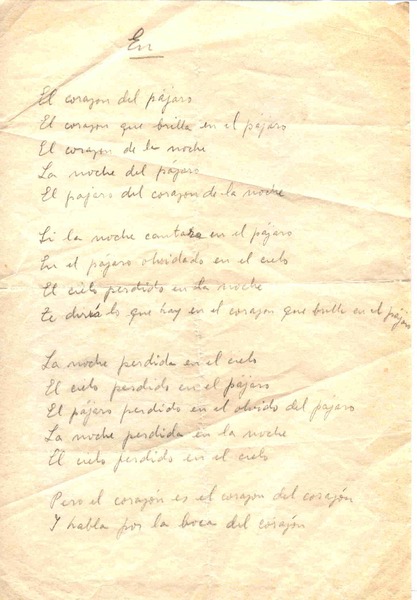 En
El corazon del pájaro
El corazon que brilla en el pájaro
El corazon de la noche
La noche del pájaro
El pajaro del corazon de la noche
Si la noche cantara en el pájaro
En el pájaro olvidado en el cielo
El cielo perdido en la noche
Te diría lo que hay en el corazon que brilla en el pájaro
La noche perdida en el cielo
El cielo perdido en el pájaro
El pájaro perdido en el olvido del pájaro
La noche perdida en la noche
El cielo perdido en el cielo
Pero el corazón es el corazon del corazón
Y habla por la boca del corazón